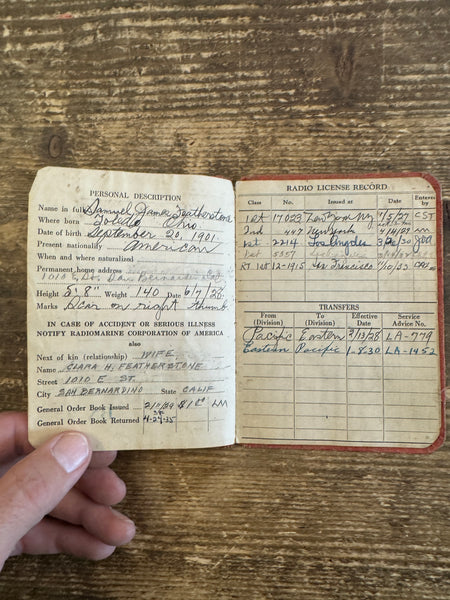 PERSONAL DESCRIPTION
Name in full Samuel James Featherstone
Where born Toledo Ohio
Date of birth September 20, 1901
Present nationality American
When and where naturalized
Permanent home address
1010 E. St. San Bernardino
Height 5' 8" Weight 140 Date 6/7/28
Marks Scar on right thumb
IN CASE OF ACCIDENT OR SERIOUS ILLNESS
NOTIFY RADIOMARINE CORPORATION OF AMERICA
also
Next of kin (relationship) WIFE
Name CLARA H. FEATHERSTONE
Street 1010 E ST.
City SAN BERNARDINO State CALIF
General Order Book Issued LM
General Order Book Returned 4-29-35
RADIO LICENSE RECORD
Class No. Issued at Date Entered by
1st 17023 New York NY 7/5/27 CST
2nd 447 New York
1st 2214 Los Angeles 3/26/30
5357
RT 1st 12-1915 San Francisco /10/33
TRANSFERS
From (Division) To (Division) Effective Date Service Advice No.
Pacific Eastern 2/13/28 LA-779
Eastern Pacific 1-8-30 LA-1452